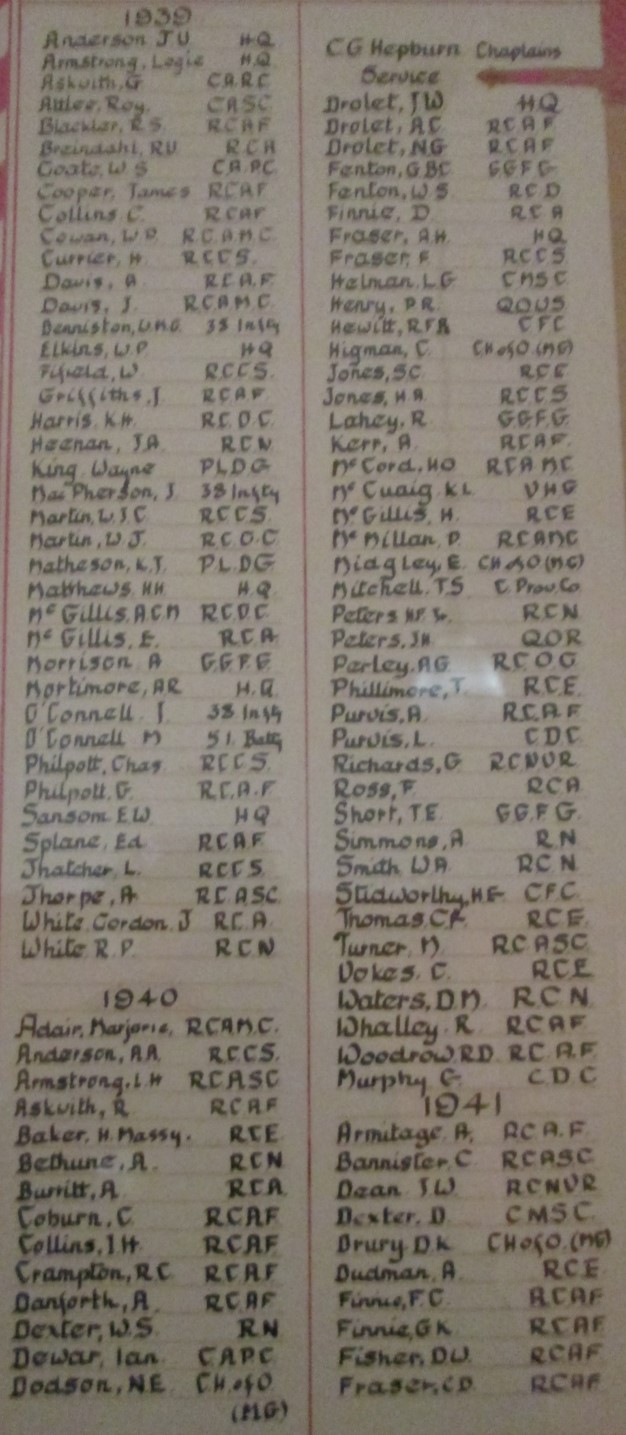 1939
Anderson J U H.Q
Armstrong, Logie H.Q.
Askwith, G C.A.R.C
Attlee, Roy. CASC
Blackler, R.S. RCAF
Breindahl, R.U R.C.A
Coats, W S C.A.P.C.
Cooper, James RCAF
Collins C. RCAF
Cowan, W.P. R.C.A.M.C.
Currier, H. R.C.C.S.
Davis, A R.C.A.F.
Davis, J. R.C.A.M.C.
Denniston, 38 Infty
Elkins, W.P. H.Q
Fifield, W. R.C.C.S.
Griffiths, J RCAF
Harris. K.H. R.C.D.C.
Heenan, J.A. R.C.N
King, Wayne P.L.D.G
MacPherson, J. 38 Infty
Martin, W.J.C R.C.C.S.
Martin, W.J. R.C.O.C.
Matheson, K.T. P.L.D.G
Matthews. H.H. H.Q.
McGillis, A C M R.C.D.C.
McGillis, E. R.C.A.
Morrison A G.G.F.G.
Mortimore, A R H.Q.
O'Connell. J. 38 Infty
O'Connell M 51. Batty
Philpott, Chas R.C.C.S.
Philpott. G. R.C.A.F
Sansom. E.W. H.Q
Splane, Ed. R.C.A.F.
Thatcher, L. R.C.C.S.
Thorpe, A. R.C.A.S.C.
White. Gordon. J R.C.A.
White R. P. R.C.N
1940
Adair, Marjorie, R.C.A.M.C.
Anderson, A.A. R.C.C.S.
Armstrong, I. H R.C.A.S.C
Askwith, R R.C.A.F
Baker, H. Massy. R.C.E
Bethune, A. R.C.N
Burritt, A. R.C.A.
Coburn, C. RCAF
Collins, I H RCAF
Crampton, R.C. RCAF
Danforth, A. RCAF
Dexter, W.S. R.N
Dewar, Ian. C.A.P.C
Dodson, N.E. C.H. of O
(M.G)
C G Hepburn Chaplains
Service
Drolet, J.W. H.Q
Drolet, A C R C A F
Drolet, N G R C A F.
Fenton, G. B C G G F G
Fenton, W. S. R C D
Finnie, D. R C A
Fraser, A.H. HQ
Fraser, F R C C S
Helman. L.G C M S C
Henry, P.R. Q.O.U.S
Hewitt, R.F.A C F C
Higman, C. C H of O (M G)
Jones, S.C. R C E
Jones, H.A. R C C S
Lahey, R G.G.F.G
Kerr, A. R.C.A.F.
McCord, H O R C A M C
McCuaig K L V H G
McGillis, H. R C E
McMillan, P. R C A M C
Midgley, E. C H of O (M G)
Mitchell. T S C. Prov. Co
Peters R C N
Peters, J H Q O R
Perley. A G R C O C
Phillimore, T. R.C.E.
Purvis, A. R.C.A.F
Purvis, L. C D C
Richards, G R C N V R
Ross, F. R C A
Short, T.E G G. F G.
Simmons, A R. N
Smith W A R C N
Studworthy, H E C F C.
Thomas. C. F. R C E.
Turner. M. R C A S C
Vokes. C. R C E
Waters, D.M. R C N
Whalley. R. R C A F.
Woodrow R.D. R C A F
Murphy G. C. D C
1941
Armitage. A, R C A. F.
Bannister. C R C A S C
Dean J.W R C N V R
Dexter. D. C M S C.
Drury. D. K C H of O. (M G)
Dudman. A R C E.
Finnie, F. C R C A F
Finnie, G K R C A F
Fisher, D.W. R C A F
Fraser, C D R C A F